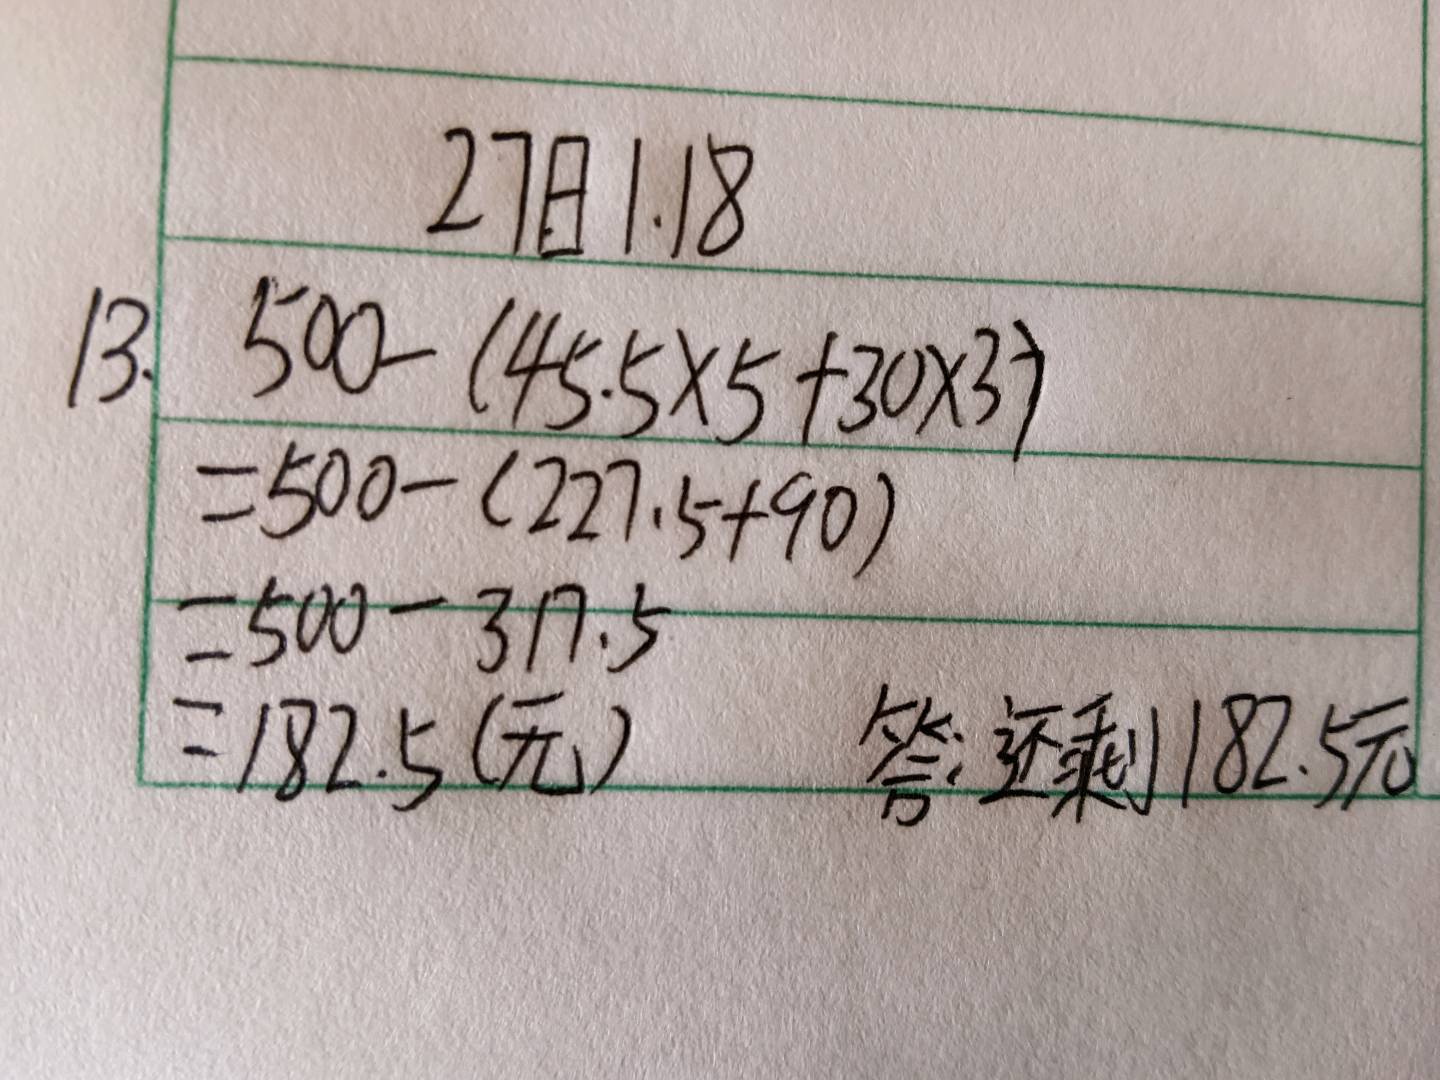 27日1.18
13. 500-(45.5×5+30×3)
=500-(227.5+90)
=500-317.5
=182.5(元) 答:还剩182.5元